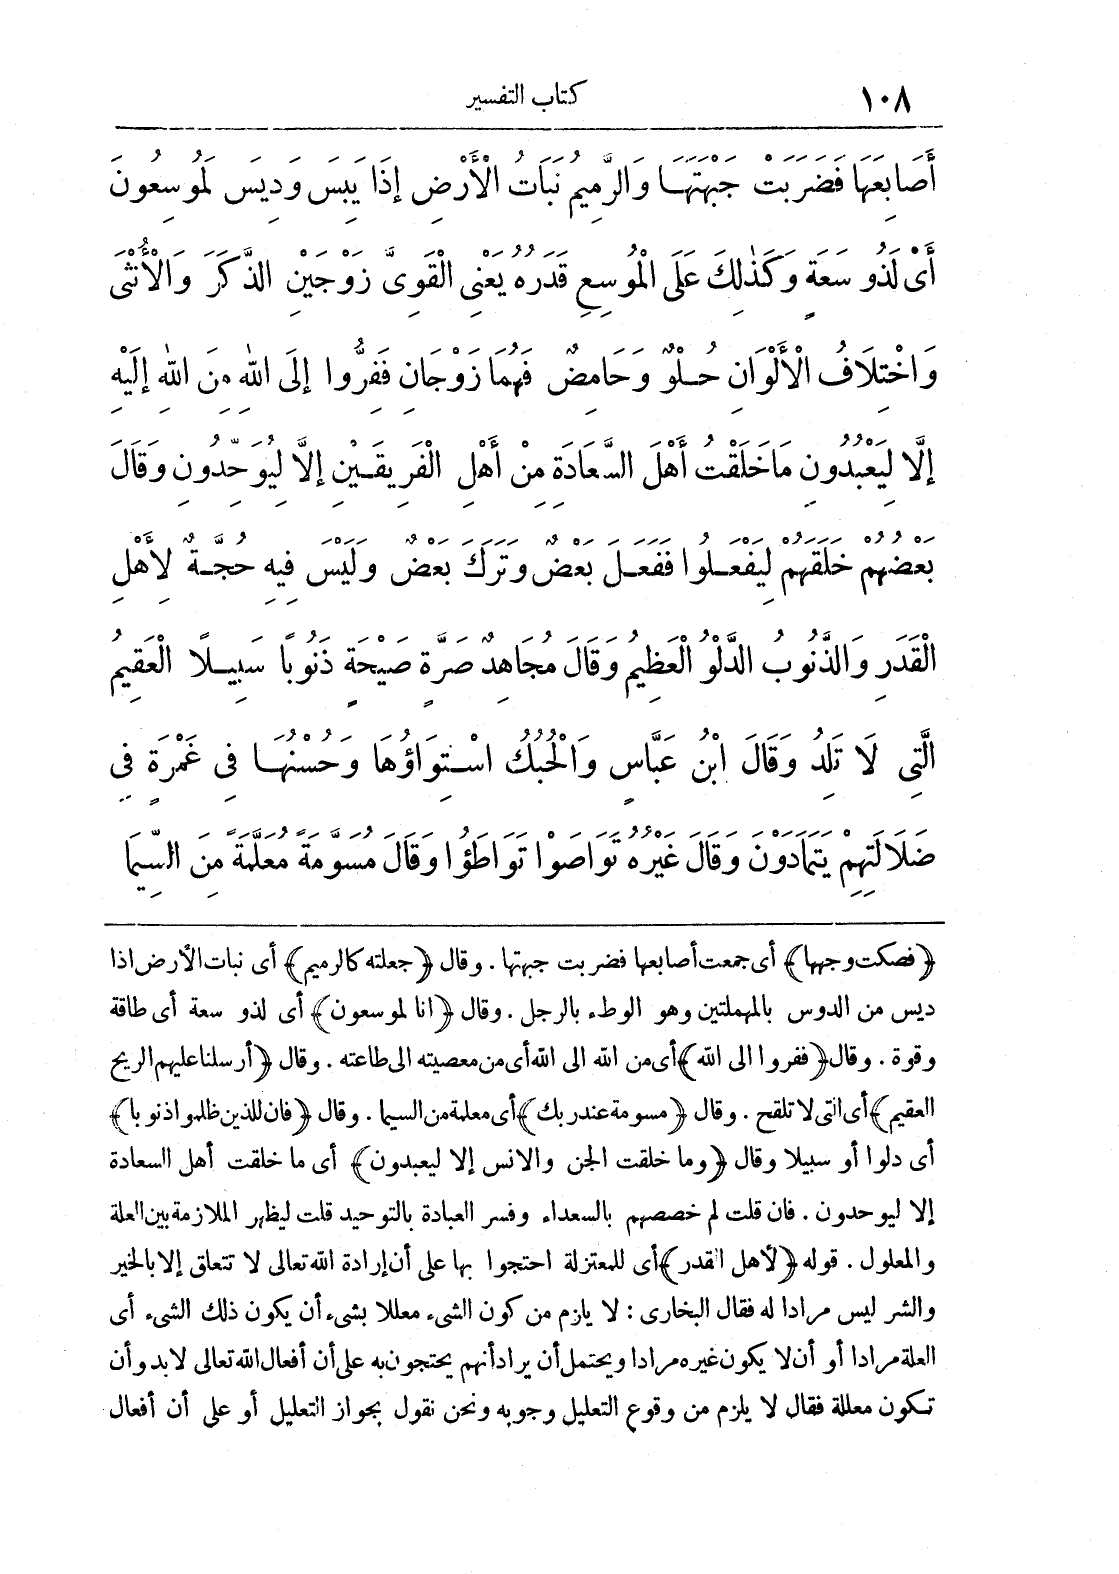 ١٠٨ كتاب التفسير
أَصَابِعَهَا فَضَرَبَتْ جَبْهَتَهَا وَالرَّمِيمُ نَبَاتُ الْأَرْضِ إِذَا يَبِسَ وَدِيسَ لَمُوسِعُونَ
أَىْ لَذُو سَعَةٍ وَكَذٰلِكَ عَلَى الْمُوسِعِ قَدَرُهُ يَعْنِى الْقَوِىَّ زَوْجَيْنِ الذَّكَرَ وَالْأُنْثَى
وَاخْتِلَافُ الْأَلْوَانِ حُلْوٌ وَحَامِضٌ فَهُمَا زَوْجَانِ فَفِرُّوا إِلَى اللهِ مِنَ اللهِ إِلَيْهِ
إِلَّا لِيَعْبُدُونِ مَا خَلَقْتُ أَهْلَ السَّعَادَةِ مِنْ أَهْلِ الْفَرِيقَيْنِ إِلَّا لِيُوَحِّدُونِ وَقَالَ
بَعْضُهُمْ خَلَقَهُمْ لِيَفْعَلُوا فَفَعَلَ بَعْضٌ وَتَرَكَ بَعْضٌ وَلَيْسَ فِيهِ حُجَّةٌ لِأَهْلِ
الْقَدَرِ وَالذَّنُوبُ الدَّلْوُ الْعَظِيمُ وَقَالَ مُجَاهِدٌ صَرَّةٍ صَيْحَةٍ ذَنُوباً سَبِيلاً الْعَقِيمُ
الَّتِى لَا تَلِدُ وَقَالَ ابْنُ عَبَّاسٍ وَالْحُبُكُ اسْتِوَاؤُهَا وَحُسْنُهَا فِى غَمْرَةٍ فِى
ضَلَالَتِهِمْ يَتَمَادَوْنَ وَقَالَ غَيْرُهُ تَوَاصَوْا تَوَاطَؤُا وَقَالَ مُسَوَّمَةً مُعَلَّمَةً مِنَ السِّيمَا
﴿فصكت وجهها﴾ أى جمعت أصابعها فضربت جبهتها . وقال ﴿جعلته كالرميم﴾ أى نبات الأرض اذا
ديس من الدوس بالمهملتين وهو الوطء بالرجل . وقال ﴿انا لموسعون﴾ أى لذو سعة أى طاقة
وقوة . وقال ﴿ففروا الى الله﴾ أى من الله الى الله أى من معصيته الى طاعته . وقال ﴿أرسلنا عليهم الريح
العقيم﴾ أى التى لا تلقح . وقال ﴿مسومة عند ربك﴾ أى معلمة من السيما . وقال ﴿فان للذين ظلموا ذنوبا﴾
أى دلوا أو سبيلا وقال ﴿وما خلقت الجن والانس إلا ليعبدون﴾ أى ما خلقت أهل السعادة
إلا ليوحدون . فان قلت لم خصصهم بالسعداء وفسر العبادة بالتوحيد قلت ليظهر الملازمة بين العلة
والمعلول . قوله ﴿لأهل القدر﴾ أى للمعتزلة احتجوا بها على أن إرادة الله تعالى لا تتعلق إلا بالخير
والشر ليس مرادا له فقال البخارى : لا يلزم من كون الشىء معللا بشىء أن يكون ذلك الشىء أى
العلة مرادا أو أن لا يكون غيره مرادا ويحتمل أن يراد أنهم يحتجون به على أن أفعال الله تعالى لا بد وأن
تكون معللة فقال لا يلزم من وقوع التعليل وجوبه ونحن نقول بجواز التعليل أو على أن أفعال